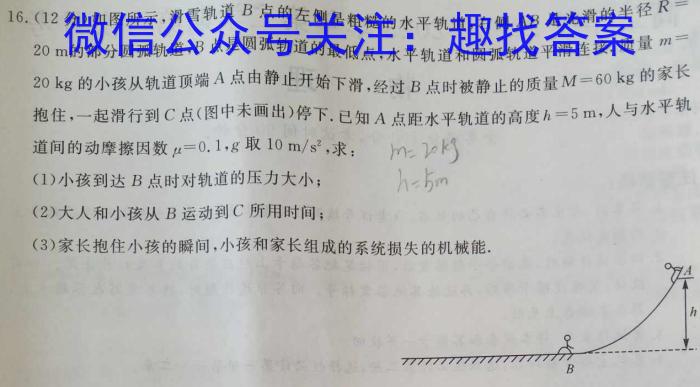 16.(12分)如图所示,滑雪轨道B点的左侧是粗糙的水平轨道,右侧AB是光滑的半径R=
20 m的部分圆弧轨道,B点是圆弧轨道的最低点,水平轨道和圆弧轨道平滑连接.质量m=
微信公众号关注:趣找答案
20 kg的小孩从轨道顶端A点由静止开始下滑,经过B点时被静止的质量M=60 kg的家长
抱住,一起滑行到C点(图中未画出)停下.已知A点距水平轨道的高度h=5 m,人与水平轨
道间的动摩擦因数μ=0.1,g取10 m/s²,求:
m=20kg
(1)小孩到达B点时对轨道的压力大小;
h=5m
(2)大人和小孩从B运动到C所用时间;
(3)家长抱住小孩的瞬间,小孩和家长组成的系统损失的机械能.
A
h
B